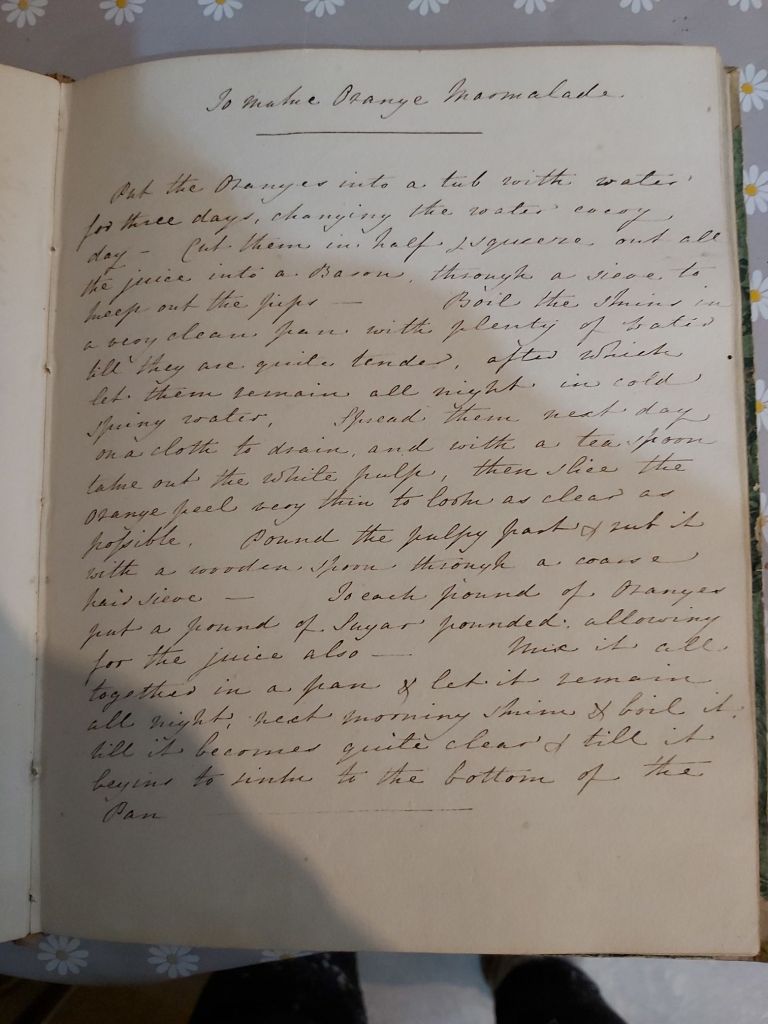 To make Orange Marmalade.
Put the Oranges into a tub with water
for three days, changing the water every
day - Cut them in half & squeeze out all
the juice into a Bason, through a sieve to
keep out the pips - Boil the skins in
a very clean pan with plenty of water
till they are quite tender, after which
let them remain all night in cold
spring water, Spread them next day
on a cloth to drain, and with a tea spoon
take out the white pulp, then slice the
Orange peel very thin to look as clear as
possible. Pound the pulpy part & rub it
with a wooden spoon through a coarse
hair sieve - To each pound of Oranges
put a pound of Sugar pounded, allowing
for the juice also - Mix it all
together in a pan & let it remain
all night, next morning skim & boil it
till it becomes quite clear & till it
begins to sink to the bottom of the
Pan